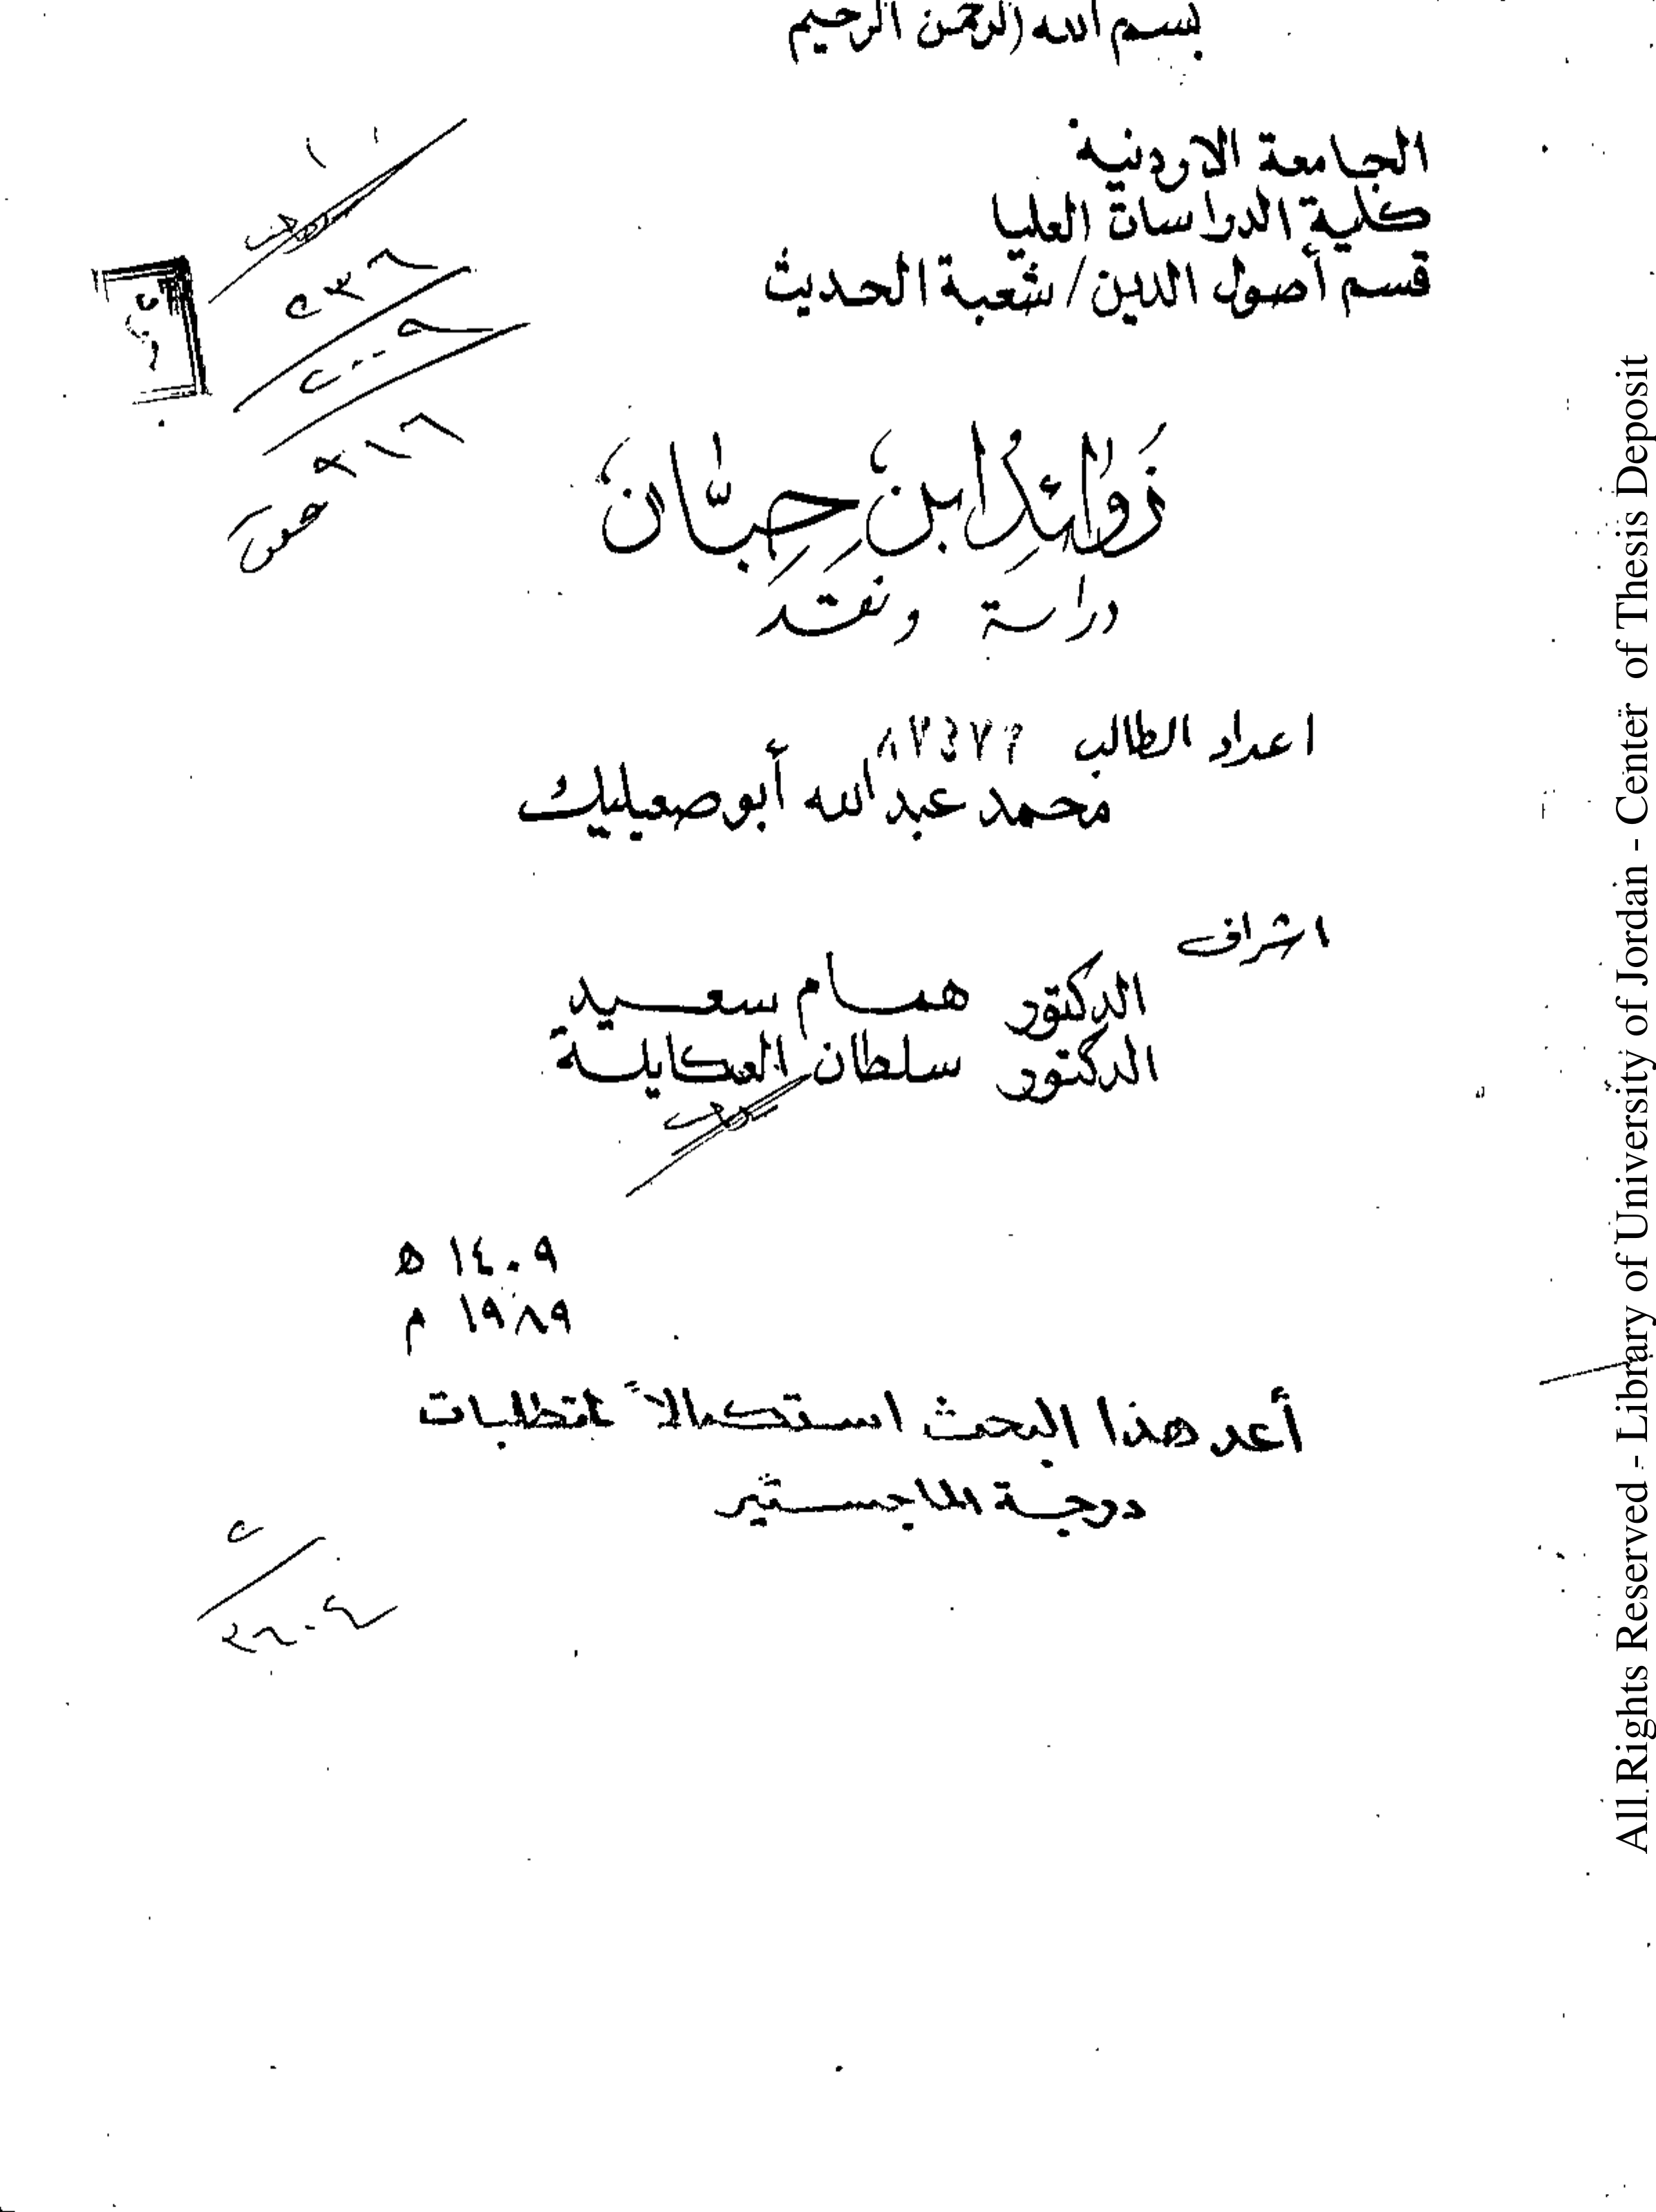 بسم الله الرحمن الرحيم
الجامعة الاردنية
كلية الدراسات العليا
قسم أصول الدين / شعبة الحديث
زَوَائِدُ ابن حِبَّان
دراسة ونقد
اعداد الطالب
محمد عبدالله أبو صعيليك
اشراف
الدكتور همام سعيد
الدكتور سلطان العكايلة
١٤٠٩ ه
١٩٨٩ م
أعد هذا البحث استكمالاً لمتطلبات
درجة الماجستير
All Rights Reserved - Library of University of Jordan - Center of Thesis Deposit